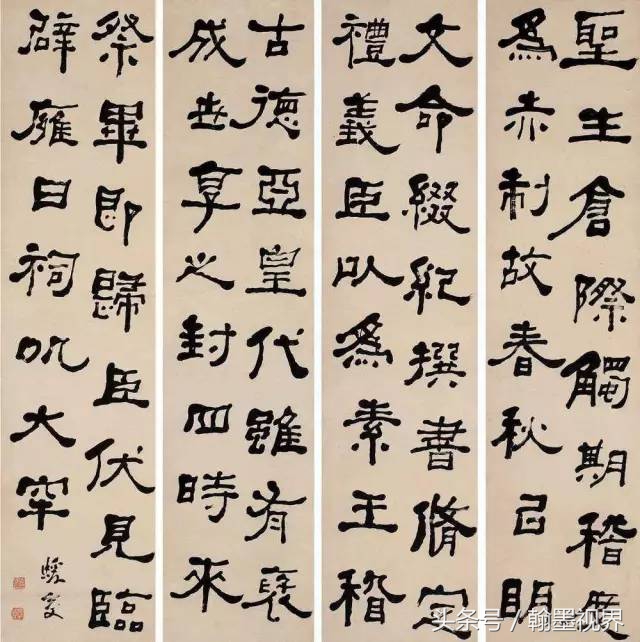 聖生倉際觸期稽度
爲赤制故春秋己明
文命綴紀撰書脩定
禮義臣以爲素王稽
古德亞皇代雖有褒
成世享之封四時來
祭畢即歸臣伏見臨
辟雍日祠大牢
蝯叟
头条号 / 翰墨视界